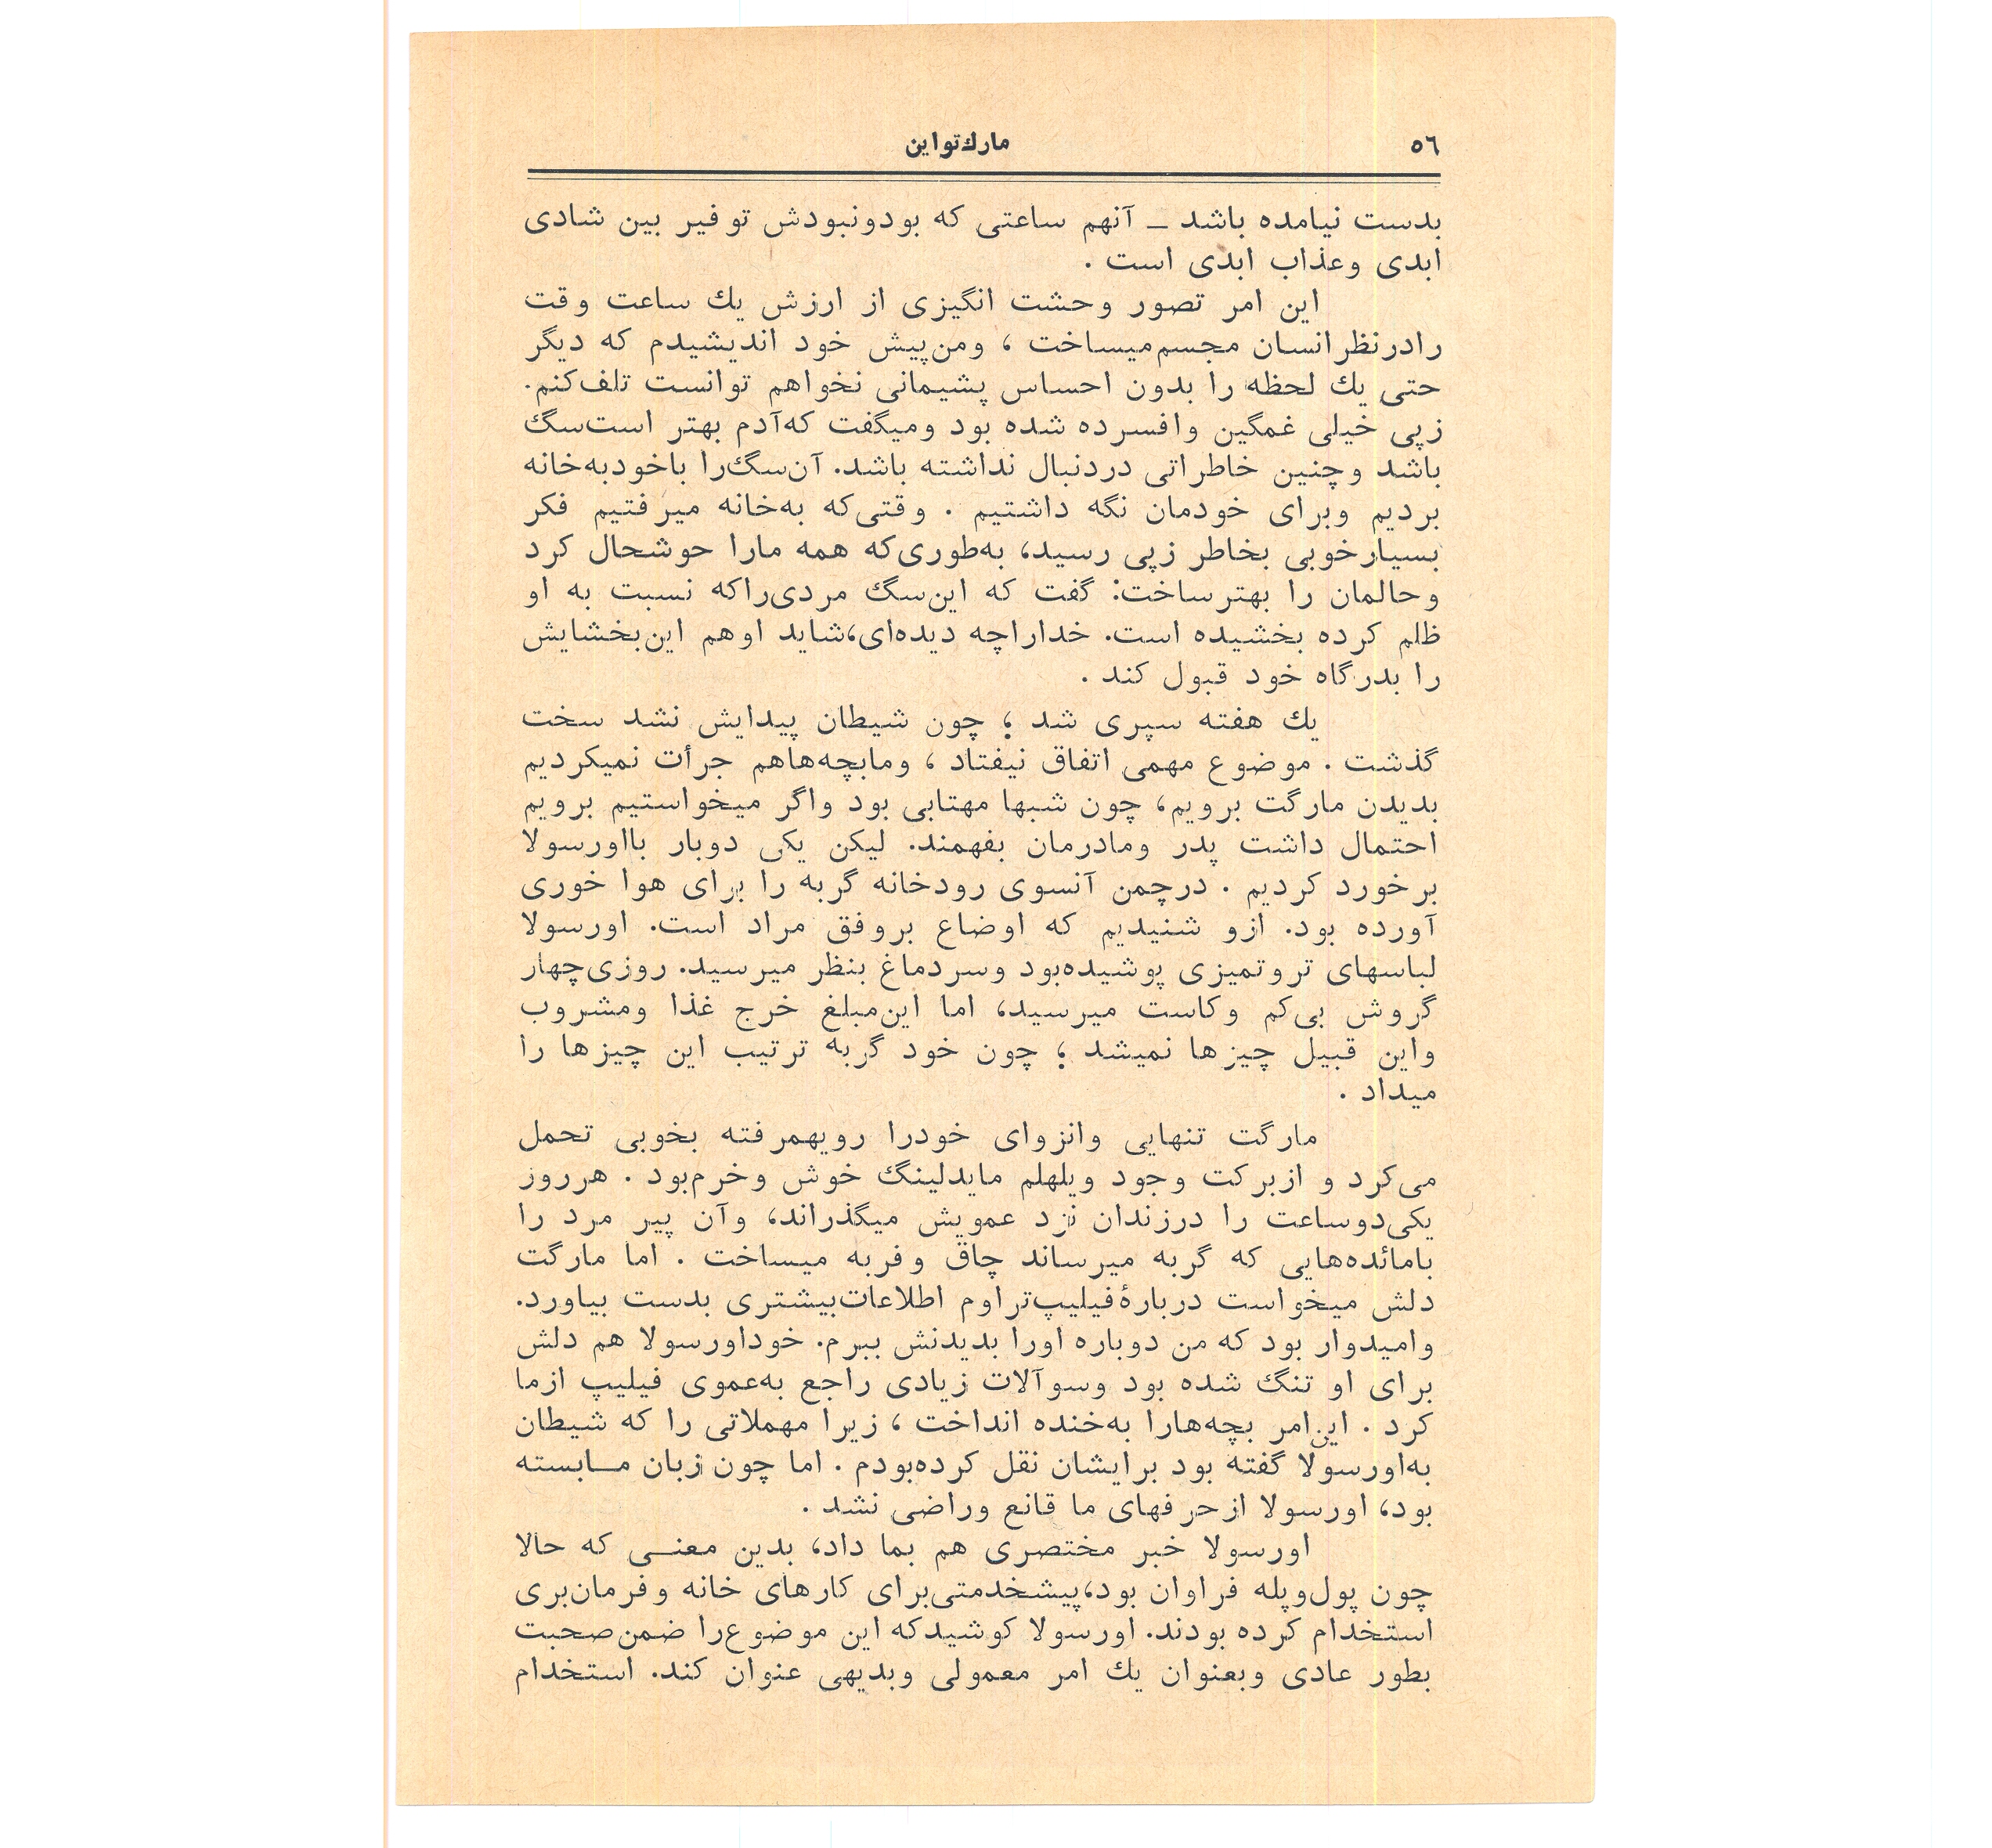 ٥٦
مارك‌تواین
بدست نیامده باشد ـ آنهم ساعتی که بودونبودش توفیر بین شادی
ابدی وعذاب ابدی است .
این امر تصور وحشت انگیزی از ارزش یك ساعت وقت
رادرنظرانسان مجسم‌میساخت ، ومن‌پیش خود اندیشیدم که دیگر
حتی یك لحظه را بدون احساس پشیمانی نخواهم توانست تلف‌کنم.
زپی خیلی غمگین وافسرده شده بود ومیگفت که‌آدم بهتر است‌سگ
باشد وچنین خاطراتی دردنبال نداشته باشد. آن‌سگ‌را باخودبه‌خانه
بردیم وبرای خودمان نگه داشتیم . وقتی‌که به‌خانه میرفتیم فکر
بسیارخوبی بخاطر زپی رسید، به‌طوری‌که همه مارا خوشحال کرد
وحالمان را بهترساخت: گفت که این‌سگ مردی‌راکه نسبت به او
ظلم کرده بخشیده است. خداراچه دیده‌ای،شاید اوهم این‌بخشایش
را بدرگاه خود قبول کند .
یك هفته سپری شد ؛ چون شیطان پیدایش نشد سخت
گذشت . موضوع مهمی اتفاق نیفتاد ، ومابچه‌هاهم جرأت نمیکردیم
بدیدن مارگت برویم، چون شبها مهتابی بود واگر میخواستیم برویم
احتمال داشت پدر ومادرمان بفهمند. لیکن یکی دوبار بااورسولا
برخورد کردیم . درچمن آنسوی رودخانه گربه را برای هوا خوری
آورده بود. ازو شنیدیم که اوضاع بروفق مراد است. اورسولا
لباسهای تروتمیزی پوشیده‌بود وسردماغ بنظر میرسید. روزی‌چهار
گروش بی‌کم وکاست میرسید، اما این‌مبلغ خرج غذا ومشروب
واین قبیل چیزها نمیشد ؛ چون خود گربه ترتیب این چیزها را
میداد .
مارگت تنهایی وانزوای خودرا رویهمرفته بخوبی تحمل
می‌کرد و ازبرکت وجود ویلهلم مایدلینگ خوش وخرم‌بود . هرروز
یکی‌دوساعت را درزندان نزد عمویش میگذراند، وآن پیر مرد را
بامائده‌هایی که گربه میرساند چاق وفربه میساخت . اما مارگت
دلش میخواست دربارهٔ‌فیلیپ‌تراوم اطلاعات‌بیشتری بدست بیاورد.
وامیدوار بود که من دوباره اورا بدیدنش ببرم. خوداورسولا هم دلش
برای او تنگ شده بود وسوآلات زیادی راجع به‌عموی فیلیپ ازما
کرد . این‌امر بچه‌هارا به‌خنده انداخت ، زیرا مهملاتی را که شیطان
به‌اورسولا گفته بود برایشان نقل کرده‌بودم . اما چون زبان مـابسته
بود، اورسولا ازحرفهای ما قانع وراضی نشد .
اورسولا خبر مختصری هم بما داد، بدین معنـی که حالا
چون پول‌وپله فراوان بود،پیشخدمتی‌برای کارهای خانه وفرمان‌بری
استخدام کرده بودند. اورسولا کوشیدکه این موضوع‌را ضمن‌صحبت
بطور عادی وبعنوان یك امر معمولی وبدیهی عنوان کند. استخدام